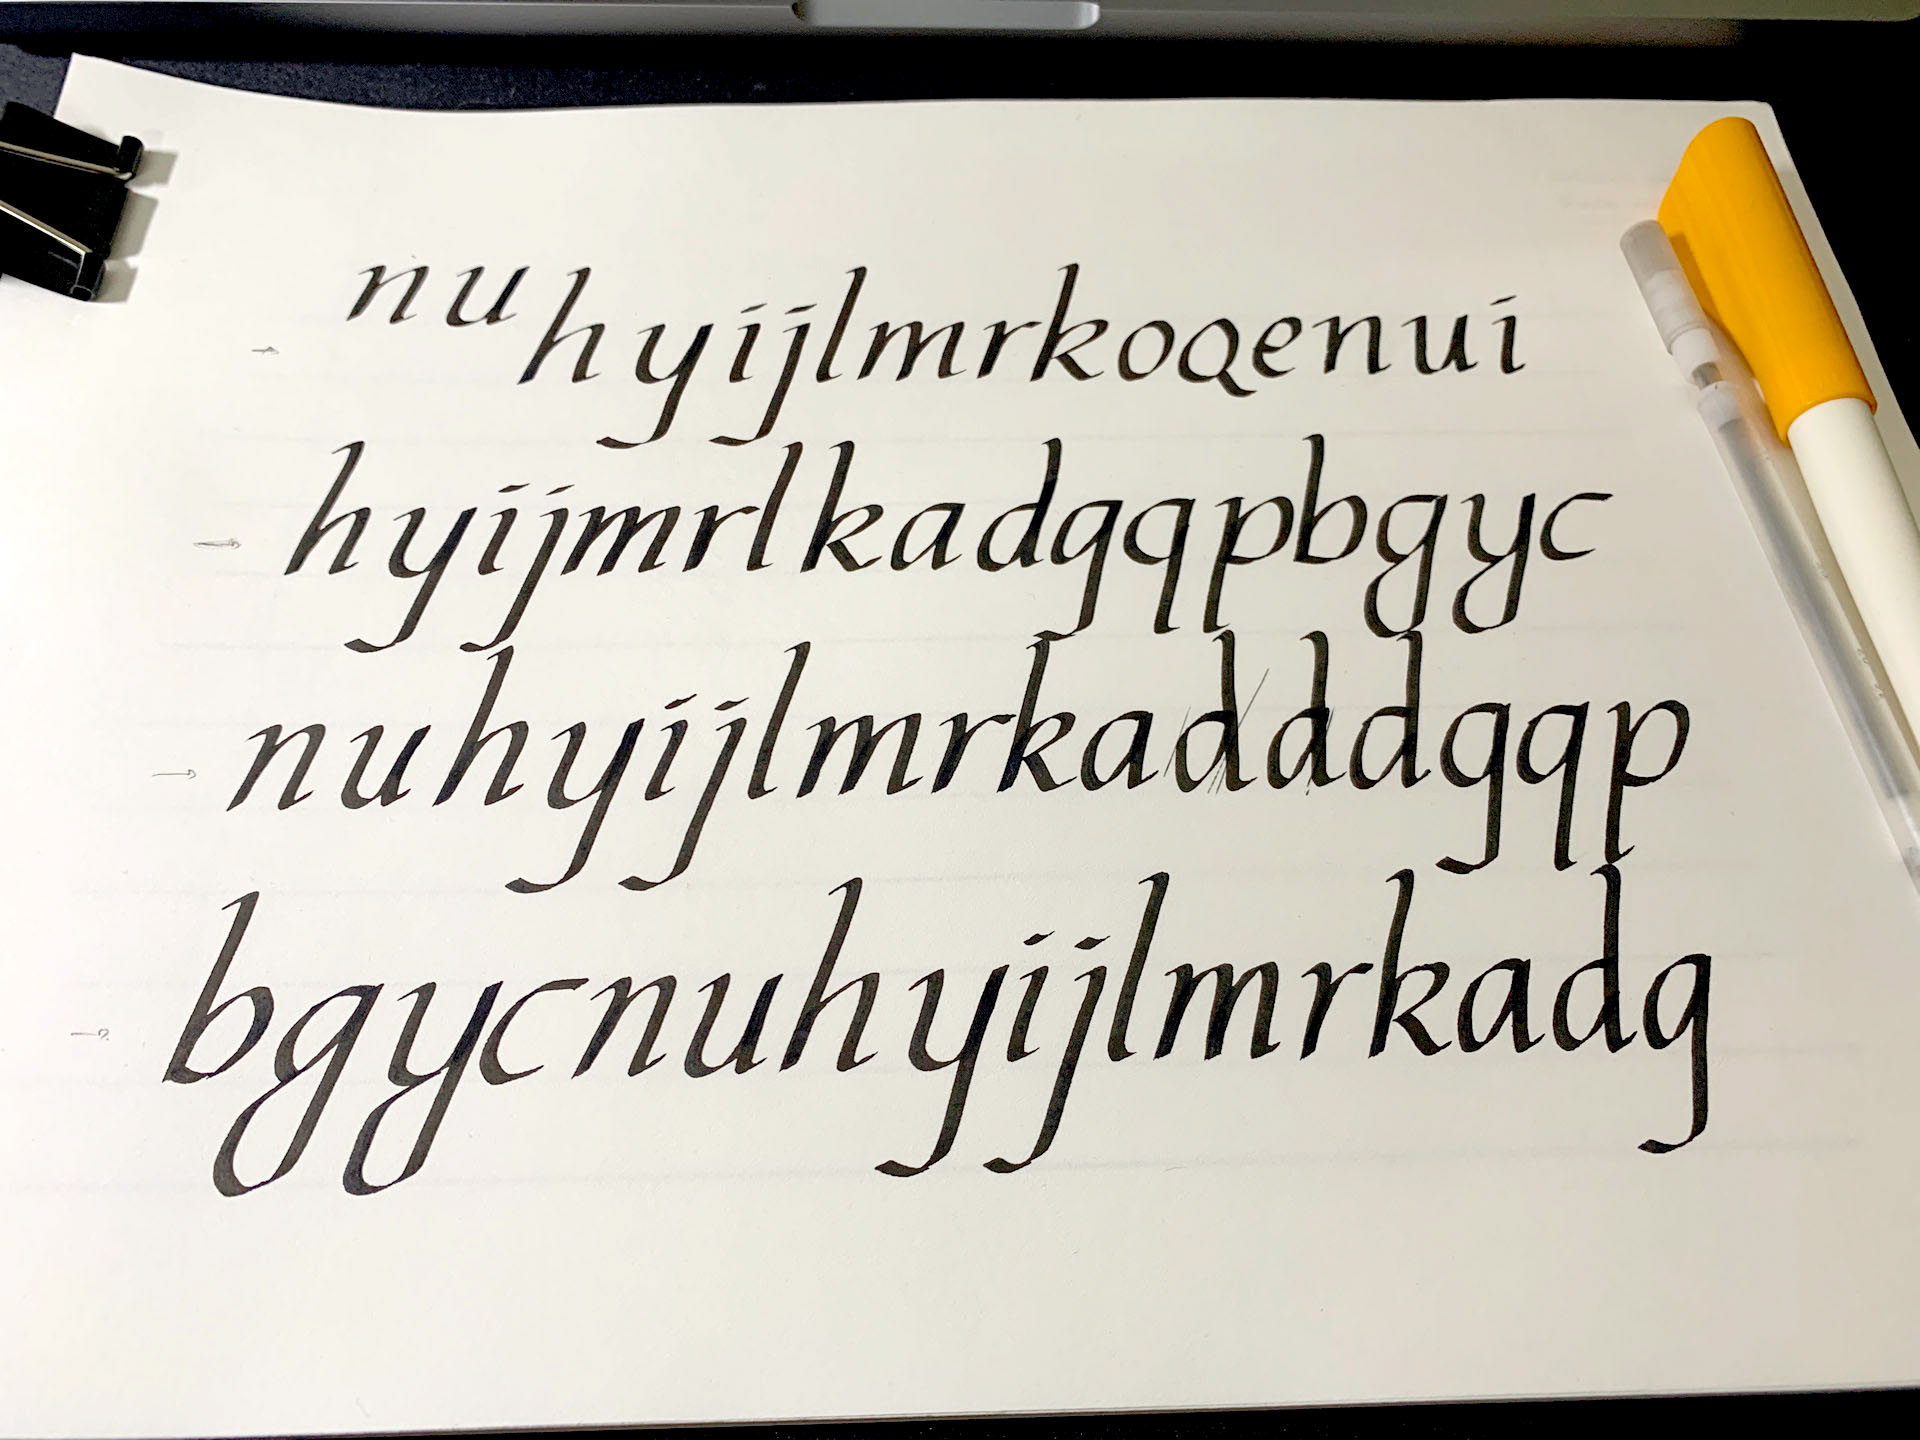 nu hyijlmrkoqenui
hyijmrlkadgqpbgyc
nuhyijlmrkadddgqp
bgycnuhyijlmrkadg